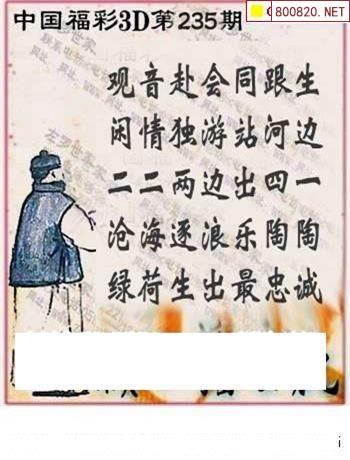 中国福彩3D第235期
800820.NET
观音赴会同跟生
闲情独游站河边
二二两边出四一
沧海逐浪乐陶陶
绿荷生出最忠诚
i